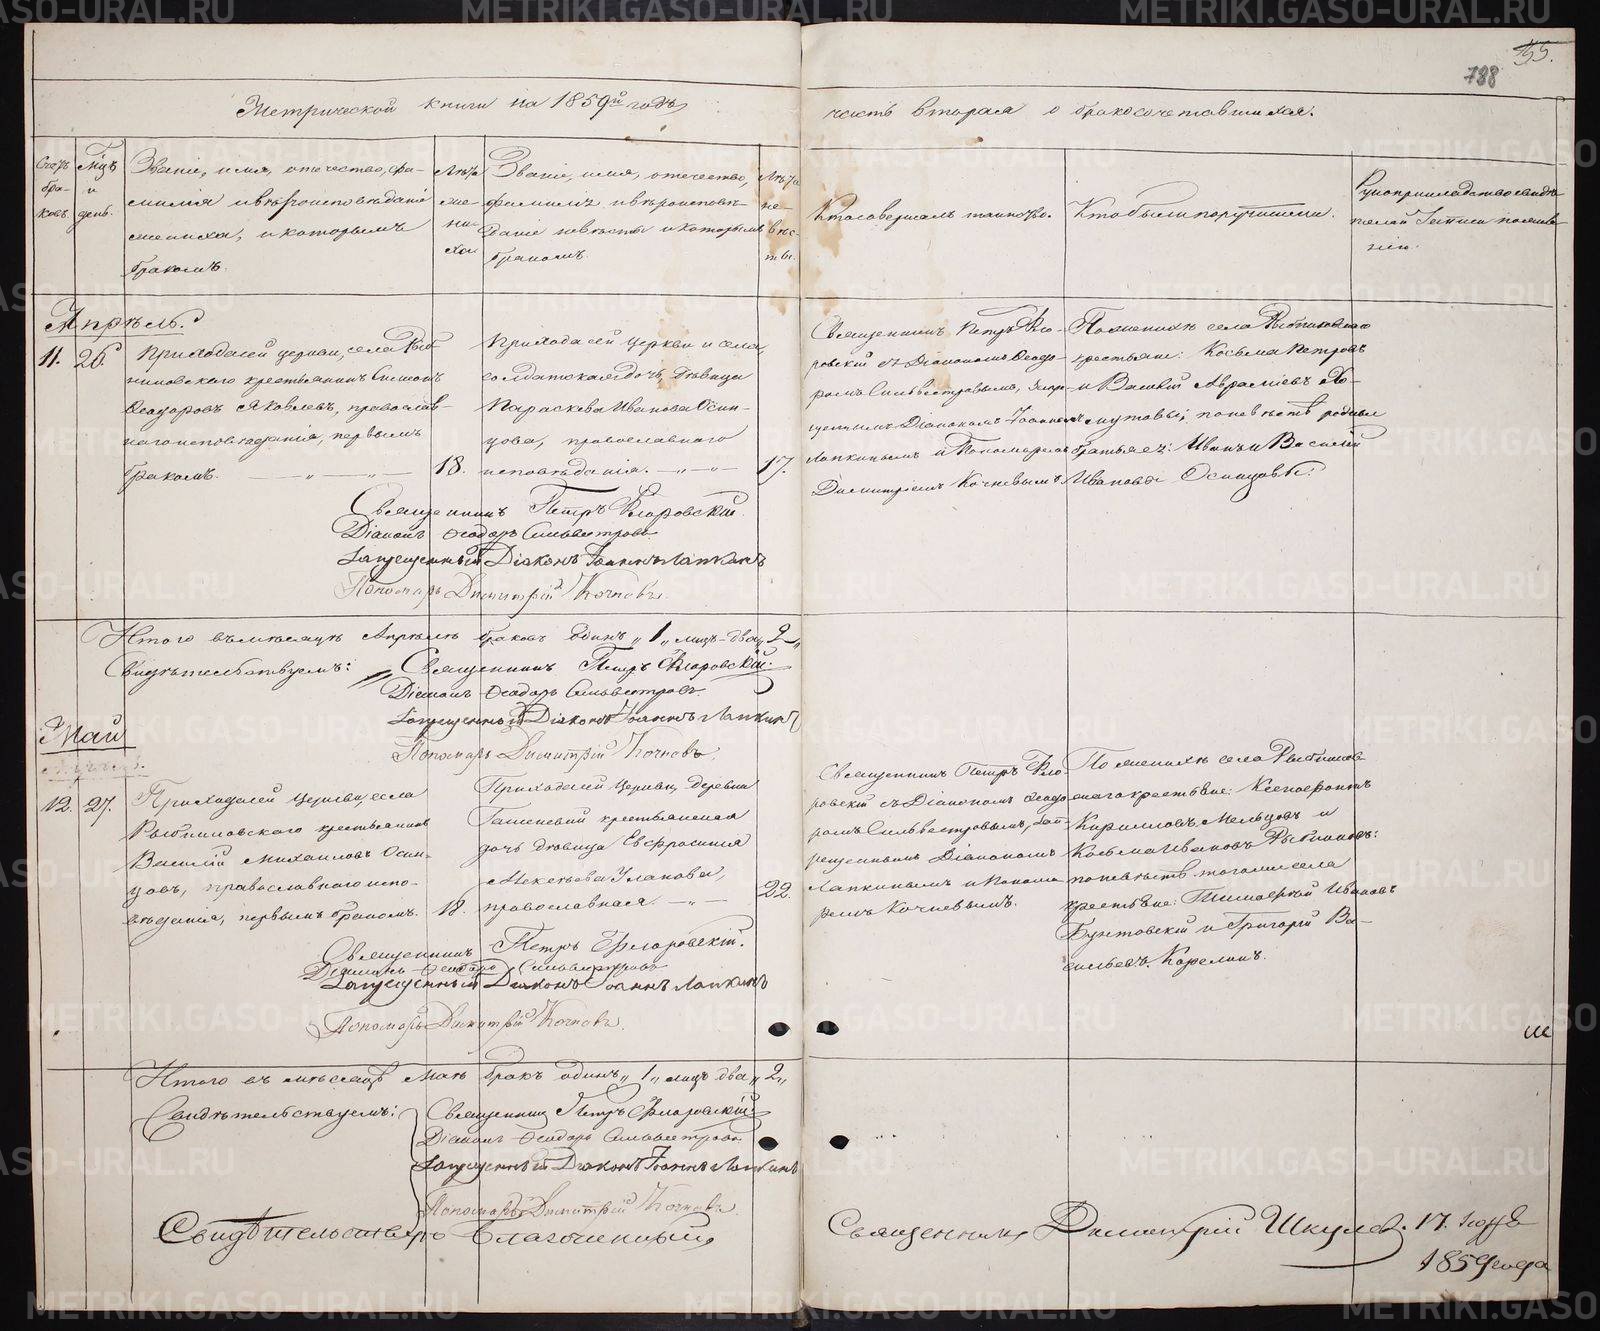 155.
788
Метрической книги на 1859й годъ
часть вторая о бракосочетавшихся.
Счетъ бра-ковъ.
Мѣцъ и день.
Званіе, имя, отчество, фа-
милія и вѣроисповѣданіе
жениха, и которымъ
бракомъ.
Лѣта
же-
ни-
ха.
Званіе, имя, отчество,
фамилія и вѣроиспов-
ѣданіе невѣсты и которымъ
бракомъ.
Лѣта
не-
вѣс-
ты.
Кто совершалъ таинство.
Кто были поручители.
Рукоприкладство свидѣ-
телей записи по жела-
нію.
Апрѣль.
11. 26.
Прихода сей церкви, села Рыб-
никовскаго крестьянинъ Симеонъ
Ѳеодоровъ Яковлевъ, православ-
наго исповѣданія, первымъ
бракомъ.
18.
Прихода сей церкви и села,
солдатская дочь, дѣвица
Параскева Иванова Осин-
цова, православнаго
исповѣданія.
17.
Священникъ Петръ Фло-
ровскій съ Діакономъ Ѳеодо-
ромъ Сильвестровымъ, запре-
щеннымъ Діакономъ Іоанномъ
Лапкинымъ и Пономаремъ
Димитріемъ Кочневымъ.
По женихѣ села Рыбниковскаго
крестьяне: Косьма Петровъ
и Василій Авраміевъ Хо-
мутовы; по невѣстѣ родные
братья ея: Иванъ и Василій
Ивановы Осинцовы.
Священникъ Петръ Флоровскій.
Діаконъ Ѳеодоръ Сильвестровъ
Запрещенный Діаконъ Іоаннъ Лапкинъ
Пономарь Димитрій Кочневъ.
Итого въ мѣсяцѣ Апрѣлѣ браковъ одинъ „1„ лицъ два „2„
Свидѣтельствуемъ:
Священникъ Петръ Флоровскій.
Діаконъ Ѳеодоръ Сильвестровъ.
Запрещенный Діаконъ Іоаннъ Лапкинъ
Пономарь Димитрій Кочневъ.
Май
12. 27.
Прихода сей церкви, села
Рыбниковскаго крестьянинъ
Василій Михаиловъ Осин-
цовъ, православнаго испо-
вѣданія, первымъ бракомъ.
18.
Прихода сей церкви, деревни
крестьянская
дочь дѣвица Евфросинія
Уланова,
православная.
22.
Священникъ Петръ Фло-
ровскій съ Діакономъ Ѳеодо-
ромъ Сильвестровымъ, зап-
рещеннымъ Діакономъ
Лапкинымъ и Понома-
ремъ Кочневымъ.
По женихѣ села Рыбников-
скаго крестьяне: Ксенофонтъ
Кирилловъ Мельцовъ и
Косьма Ивановъ
по невѣстѣ тогоже села
крестьяне: Тимофей Ивановъ
Бунтовскій и Григорій Ва-
сильевъ Карелинъ.
Священникъ Петръ Флоровскій.
Діаконъ Ѳеодоръ Сильвестровъ
Запрещенный Діаконъ Іоаннъ Лапкинъ
Пономарь Димитрій Кочневъ.
Итого въ мѣсяцѣ Маѣ бракъ одинъ „1„ лицъ два „2„
Свидѣтельствуемъ:
Священникъ Петръ Флоровскій
Діаконъ Ѳеодоръ Сильвестровъ
Запрещенный Діаконъ Іоаннъ Лапкинъ
Пономарь Димитрій Кочневъ.
Свидѣтельствую Благочинный,
Священникъ Димитрій Шкулев. 17.
1859 года
METRIKI.GASO-URAL.RU